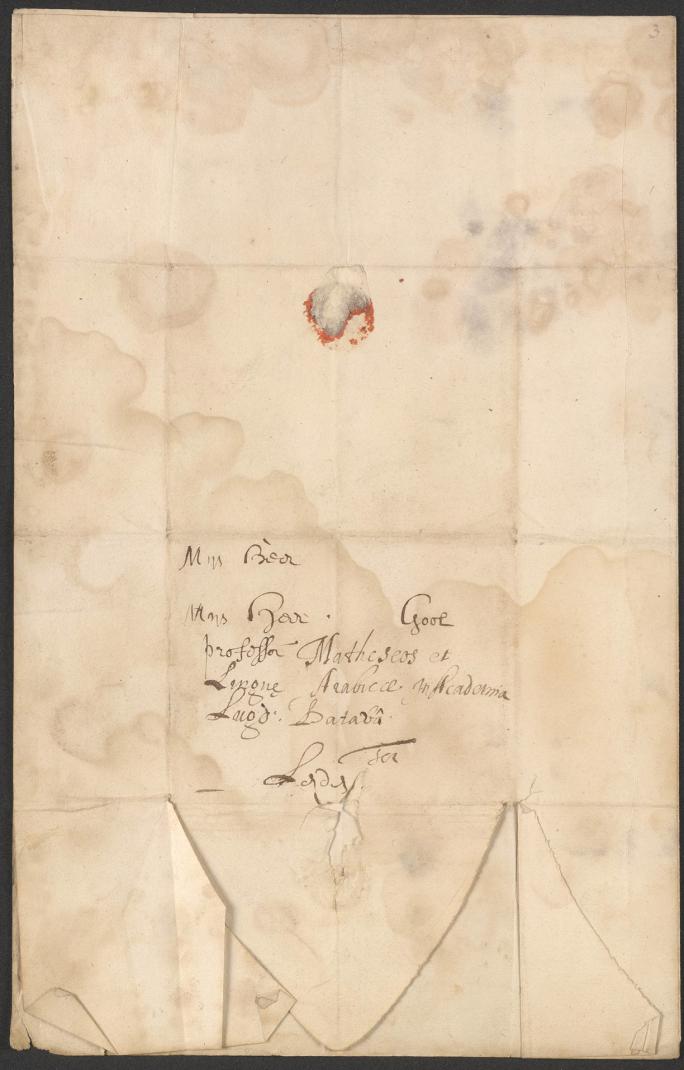 3
Mijn Heer
Mijn Heer . Gool
professor Matheseos et
Linguę Arabicæ. in Academia
Lugd: Batavâ.
Ter
Leyden.